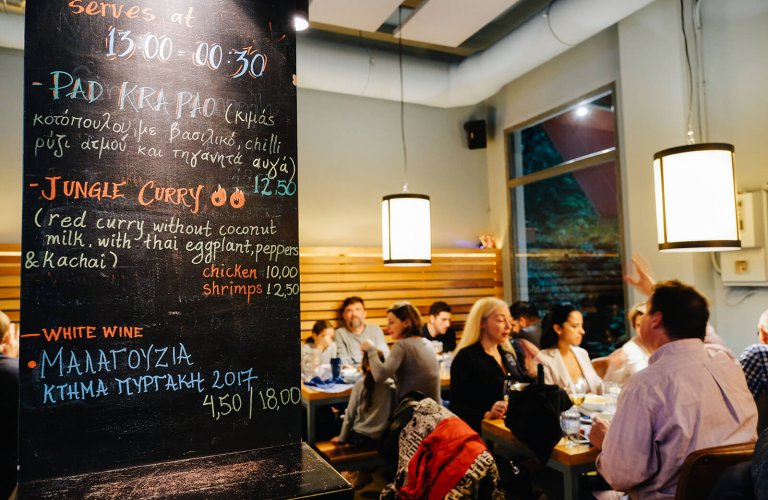 serves at
13:00-00:30
- PAD KRA PAO (κιμάς
κοτόπουλου, με βασιλικό, chilli
ρύζι ατμού και τηγανητά αυγά)
12.50
- JUNGLE CURRY
(red curry without coconut
milk, with thai eggplant, peppers
& Kachai)
chicken 10,00
shrimps 12,50
- WHITE WINE
• ΜΑΛΑΓΟΥΖΙΑ
ΚΤΗΜΑ ΠΥΡΓΑΚΗ 2017
4,50/18,00